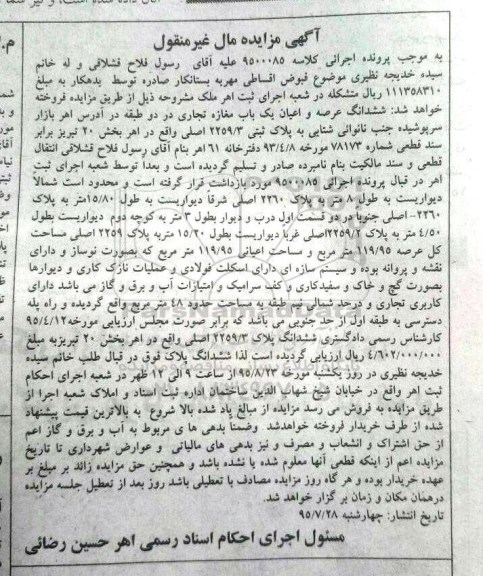 آگهی مزایده مال غیرمنقول
به موجب پرونده اجرائی کلاسه ۹۵۰۰۰۸۵ علیه آقای رسول فلاح قشلاقی و له خانم
سیده خدیجه نظیری موضوع قبوض اقساطی مهریه بستانکار صادره توسط بدهکار به مبلغ
۱۱۱۳۵۸۳۱۰ ریال متشکله در شعبه اجرای ثبت اهر ملک مشروحه ذیل از طریق مزایده فروخته
خواهد شد: ششدانگ عرصه و اعیان یک باب مغازه تجاری در دو طبقه در آدرس اهر بازار
سرپوشیده جنب نانوائی شتابی به پلاک ثبتی ۲۲۵۹/۳ اصلی واقع در اهر بخش ۲۰ تبریز برابر
سند قطعی شماره ۷۸۱۷۳ مورخه ۹۳/۴/۸ دفترخانه ۶۱ اهر بنام آقای رسول فلاح قشلاقی انتقال
قطعی و سند مالکیت بنام نامبرده صادر و تسلیم گردیده است و بعدا توسط شعبه اجرای ثبت
اهر در قبال پرونده اجرائی ۹۵۰۰۰۸۵ مورد بازداشت قرار گرفته است و محدود است شمالاً
دیواریست به طول ۸ متر به پلاک ۲۲۶۰ اصلی شرقا دیواریست به طول ۱۵/۸۰متر به پلاک
۲۲۶۰- اصلی جنوبا در دو قسمت اول درب و دیوار بطول ۳ متر به کوچه دوم دیواریست بطول
۴/۵۰ متر به پلاک ۲۲۵۹/۲اصلی غربا دیواریست بطول ۱۵/۲۰ متربه پلاک ۲۲۵۹ اصلی مساحت
کل عرصه ۱۱۹/۹۵ متر مربع و مساحت اعیانی ۱۱۹/۹۵ متر مربع که بصورت نوساز و دارای
نقشه و پروانه بوده و سیستم سازه ای دارای اسکلت فولادی و عملیات نازک کاری و دیوارها
بصورت گچ و خاک و سفیدکاری و کف سرامیک و امتیازات آب و برق و گاز می باشد دارای
کاربری تجاری و درحد شمالی نیم طبقه به مساحت حدود ۴۸ متر مربع واقع گردیده و راه پله
دسترسی به طبقه اول از حد جنوبی می باشد که برابر صورت مجلس ارزیابی مورخه۹۵/۴/۱۲
کارشناس رسمی دادگستری ششدانگ پلاک ۲۲۵۹/۳ اصلی واقع در اهر بخش ۲۰ تبریزبه مبلغ
۴/۶۰۲/۰۰۰/۰۰۰ ریال ارزیابی گردیده است لذا ششدانگ پلاک فوق در قبال طلب خانم سیده
خدیجه نظیری در روز یکشنبه مورخه ۹۵/۸/۲۳از ساعت ۹ الی ۱۲ ظهر در شعبه اجرای احکام
ثبت اهر واقع در خیابان شیخ شهاب الدین ساختمان اداره ثبت اسناد و املاک شعبه اجرا از
طریق مزایده به فروش می رسد مزایده از مبالغ یاد شده بالا شروع به بالاترین قیمت پیشنهاد
شده از طرف خریدار فروخته خواهدشد. وضمنا بدهی ها ی مربوط به آب و برق و گاز اعم
از حق اشتراک و انشعاب و مصرف و نیز بدهی های مالیاتی و عوارض شهرداری تا تاریخ
مزایده اعم از اینکه قطعی آنها معلوم شده یا نشده باشد و همچنین حق مزایده زائد بر مبلغ بر
عهده خریدار بوده و هر گاه روز مزایده مصادف با تعطیلی باشد روز بعد از تعطیل جلسه مزایده
درهمان مکان و زمان بر گزار خواهد شد.
تاریخ انتشار: چهارشنبه ۹۵/۷/۲۸
مسئول اجرای احکام اسناد رسمی اهر حسین رضائی